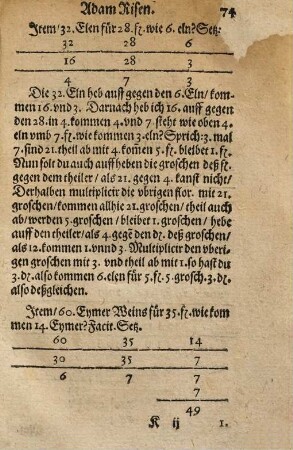 Adam Risen. 74
Item/32. Elen für 28.fl. wie 6. eln? Setz:
32 28 6
16 28 3
4 7 3
Die 32. Eln heb auff gegen den 6. Eln/kom-
men 16. vnd 3. Darnach heb ich 16. auff gegen
den 28. in 4. kommen 4. vnd 7 steht wie oben 4.
eln vmb 7.fl. wie kommen 3. eln? Sprich: 3. mal
7. sind 21. theil ab mit 4. kom̃en 5.fl. bleibet 1.fl.
Nun solt du auch auffheben die groschen deß fl.
gegen dem theiler/als 21. gegen 4. kanst nicht/
Derhalben multiplicir die vbrigen flor. mit 21.
groschen/kommen allhie 21. groschen/theil auch
ab/werden 5. groschen/bleibet 1. groschen/hebe
auff den theiler/als 4 gegẽ den ₰. deß groschen/
als 12. kommen 1. vnnd 3. Multiplicir den vberi-
gen groschen mit 3. vnd theil ab mit 1. so hast du
3.₰. also kommen 6. elen für 5.fl. 5. grosch. 3.₰.
also deßgleichen.
Item/60. Eymer Weins für 35.fl. wie kom
men 14. Eymer? Facit. Setz.
60 35 14
30 35 7
6 7 7
7
49
K ij 1.